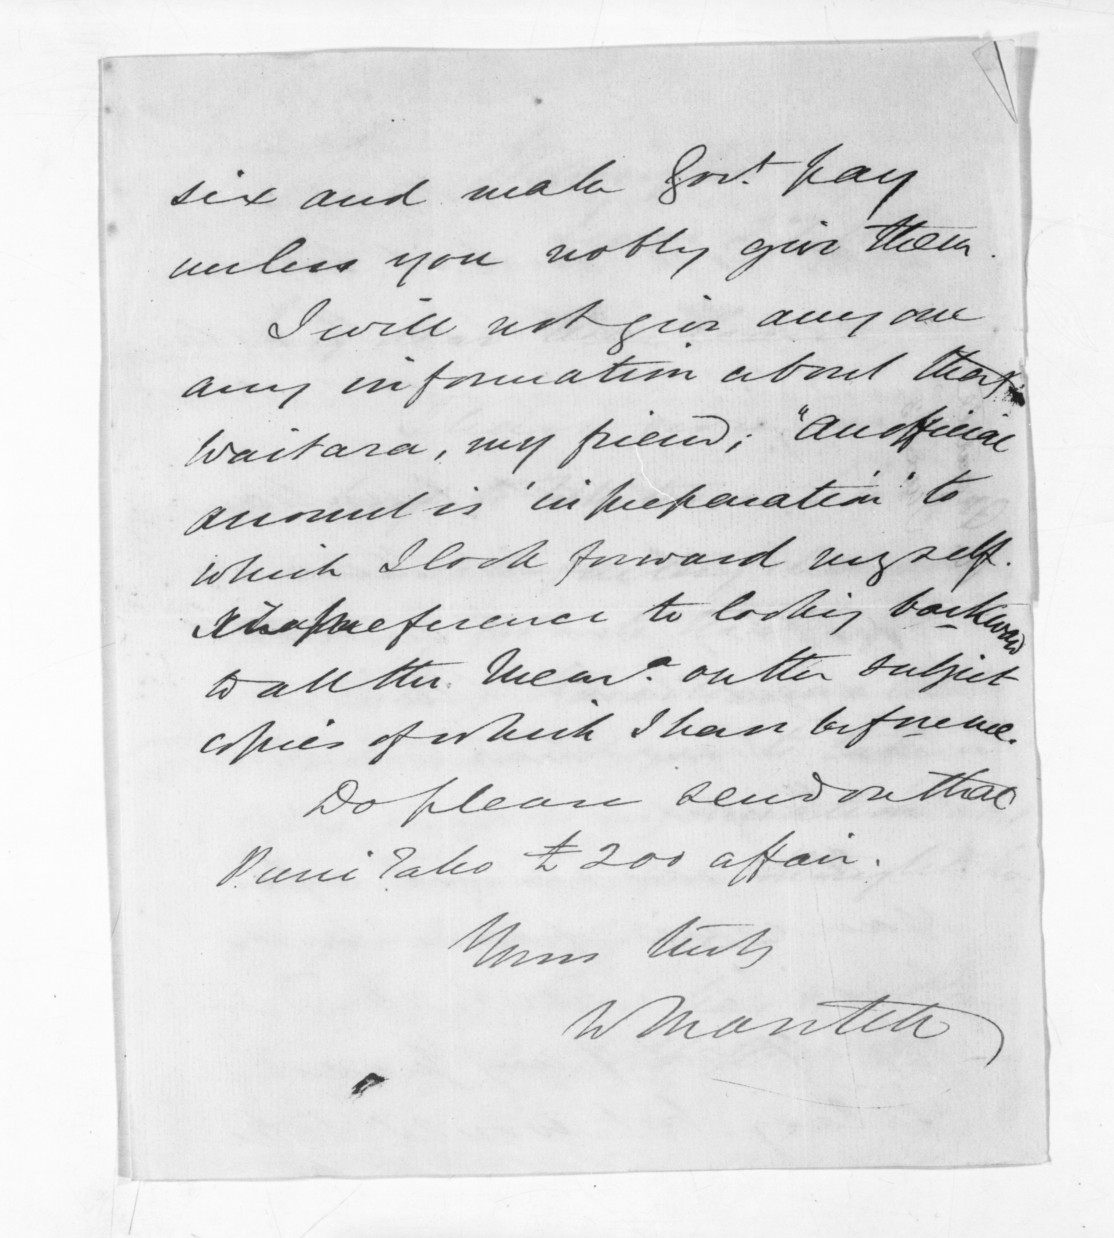 six and make Govt. pay
unless you nobly give them.
I will not give any one
any information about that
Waitara, my friend; "An official
account is 'in preparation' to
which I look forward myself.
in preference to looking backward
to all the Mem.a on the subject
copies of which I have before me.
Do please send on that
Puni £200 affair.
Yours truly
W Mantell